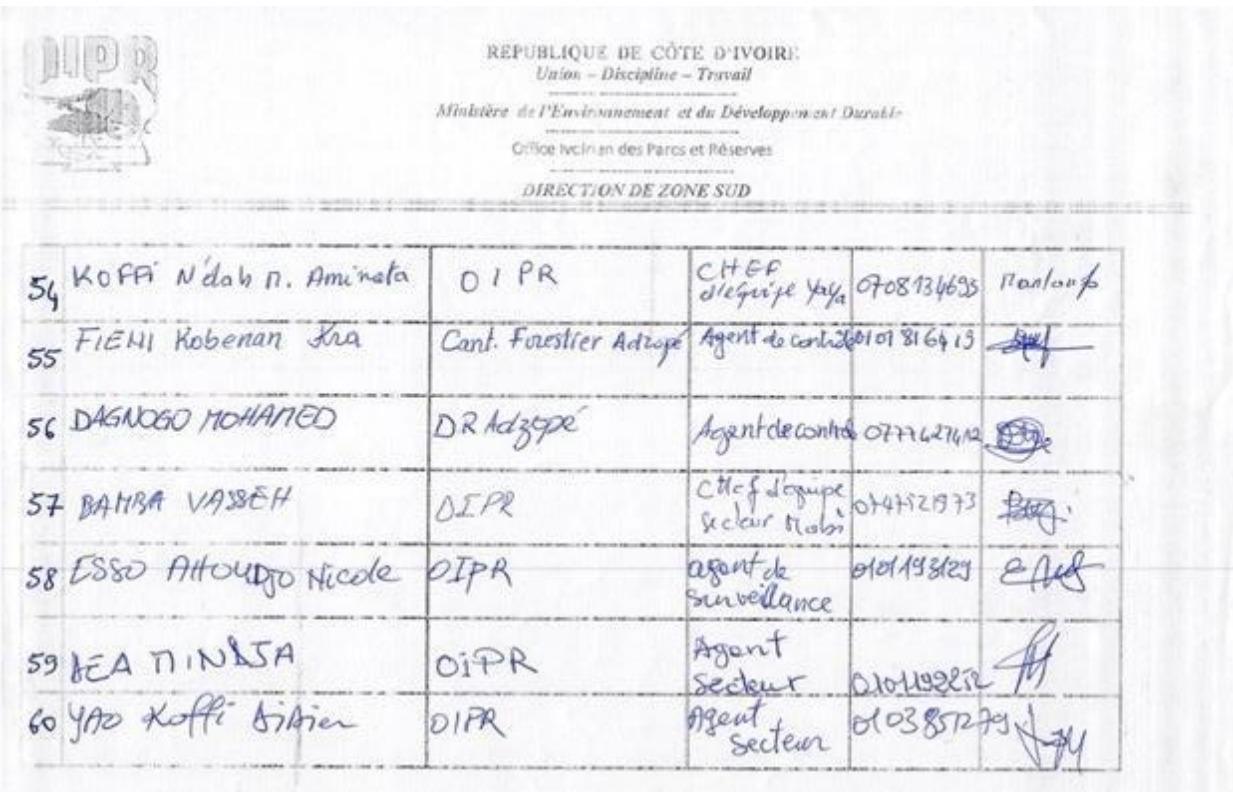 OIPR
REPUBLIQUE DE CÔTE D'IVOIRE
Union – Discipline – Travail
Ministère de l'Environnement et du Développement Durable
Office Ivoirien des Parcs et Réserves
DIRECTION DE ZONE SUD
54 KOFFI N'dah n. Aminata OIPR CHEF d'équipe Yaya 0708134693
55 FIENI Kobenan Kra Cant. Forestier Adzopé Agent de contrôle 0101816419
56 DAGNOGO MOHAMED DR Adzopé Agent de contrôle
57 BAMBA VASSEH OIPR Chef d'équipe secteur Mabi
58 ESSO AHOUDJO Nicole OIPR agent de surveillance 0101193129
59 OiPR Agent secteur
60 YAO Koffi OIPR Agent secteur 0103851279